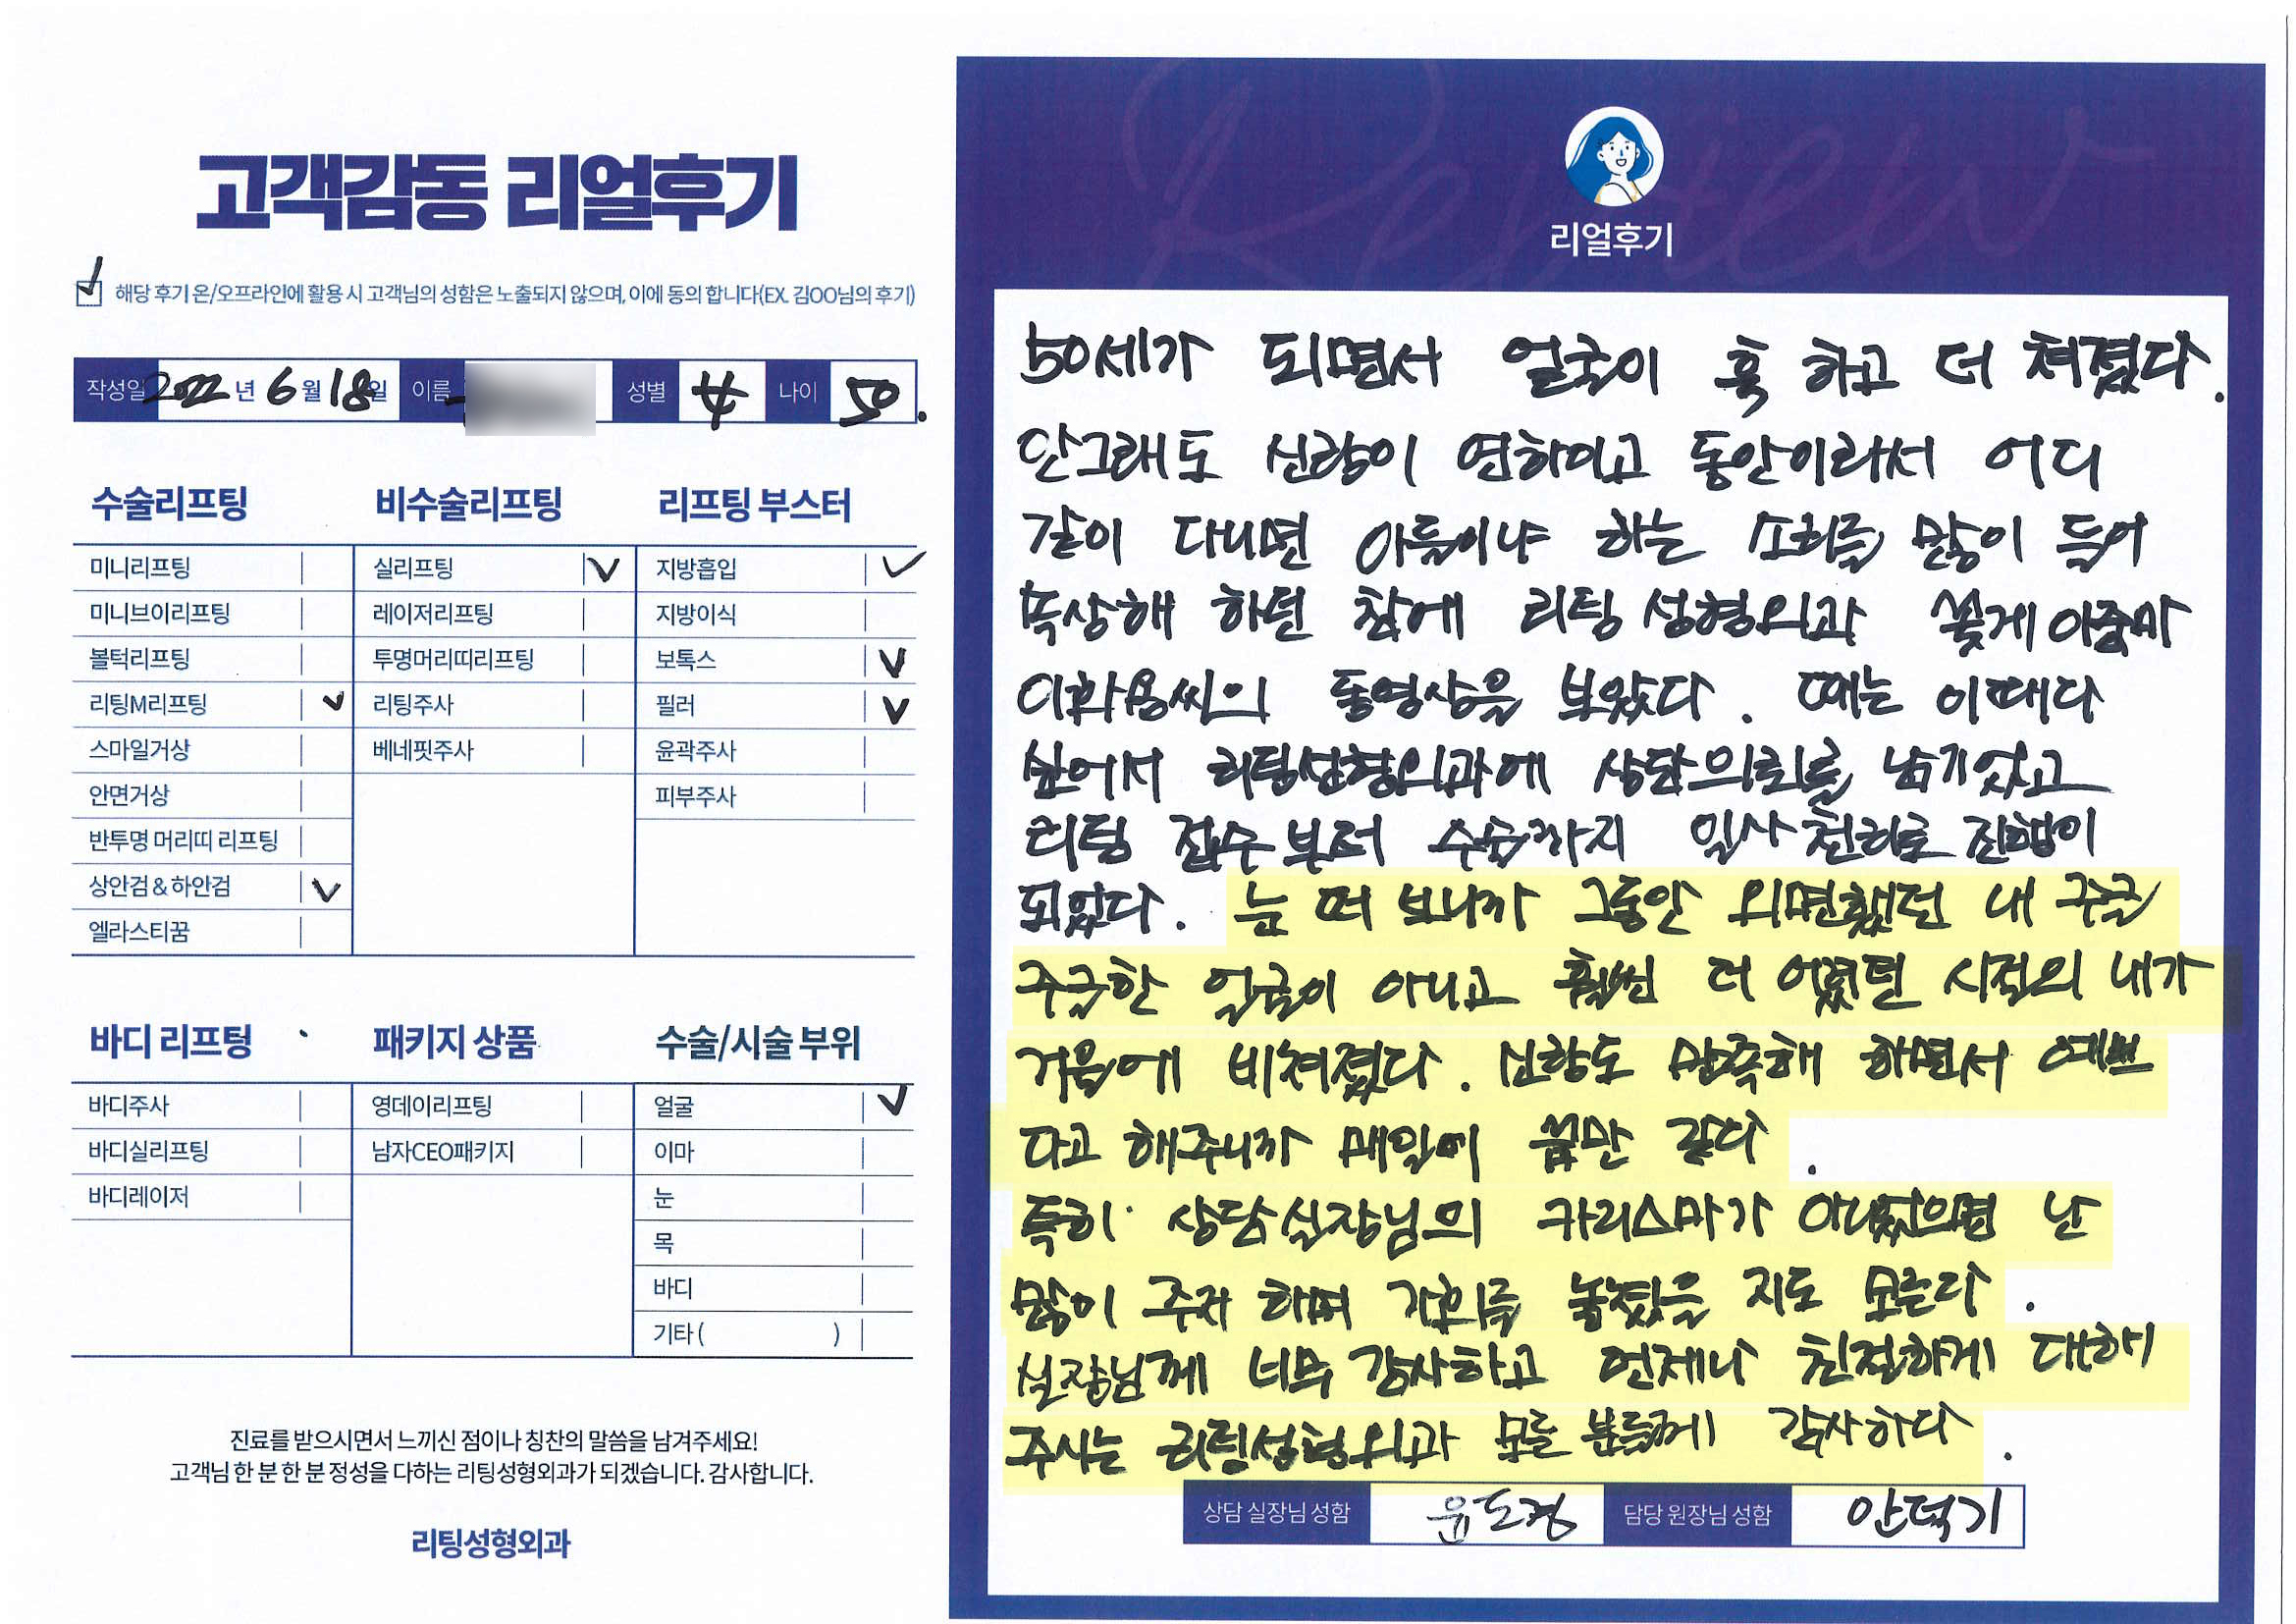 고객감동 리얼후기
✓ 해당 후기 온/오프라인에 활용 시 고객님의 성함은 노출되지 않으며, 이에 동의 합니다(EX. 김OO님의 후기)
작성일 2022년 6월 18일 이름 성별 女 나이 50.
수술리프팅 비수술리프팅 리프팅 부스터
미니리프팅 실리프팅 ✓ 지방흡입 ✓
미니브이리프팅 레이저리프팅 지방이식
볼턱리프팅 투명머리띠리프팅 보톡스 ✓
리팅M리프팅 ✓ 리팅주사 필러 ✓
스마일거상 베네핏주사 윤곽주사
안면거상 피부주사
반투명 머리띠 리프팅
상안검 & 하안검 ✓
엘라스티꿈
바디 리프텅 패키지 상품 수술/시술 부위
바디주사 영데이리프팅 얼굴 ✓
바디실리프팅 남자CEO패키지 이마
바디레이저 눈
목
바디
기타 ( )
진료를 받으시면서 느끼신 점이나 칭찬의 말씀을 남겨주세요!
고객님 한 분 한 분 정성을 다하는 리팅성형외과가 되겠습니다. 감사합니다.
리팅성형외과
Review
리얼후기
50세가 되면서 얼굴이 훅 하고 더 쳐졌다.
안그래도 신랑이 연하이고 동안이라서 어디
같이 다니면 아들이냐 하는 소리를 많이 들어
속상해 하던 참에 리팅성형외과 꽃게아줌마
이화용씨의 동영상을 보았다. 때는 이때다
싶어서 리팅성형외과에 상담의뢰를 남기었고
리팅 접수부터 수술까지 일사천리로 진행이
되었다. 눈 떠 보니까 그동안 외면했던 내 쭈글
쭈글한 얼굴이 아니고 훨씬 더 어렸던 시절의 내가
거울에 비쳐졌다. 신랑도 만족해 하면서 예쁘
다고 해주니까 매일이 꿈만 같다.
특히 상담실장님의 카리스마가 아니었으면 난
많이 주저 하며 기회를 놓쳤을 지도 모른다.
실장님께 너무 감사하고 언제나 친절하게 대해
주시는 리팅성형외과 모든 분들께 감사하다.
상담 실장님 성함 윤도경 담당 원장님 성함 안덕기